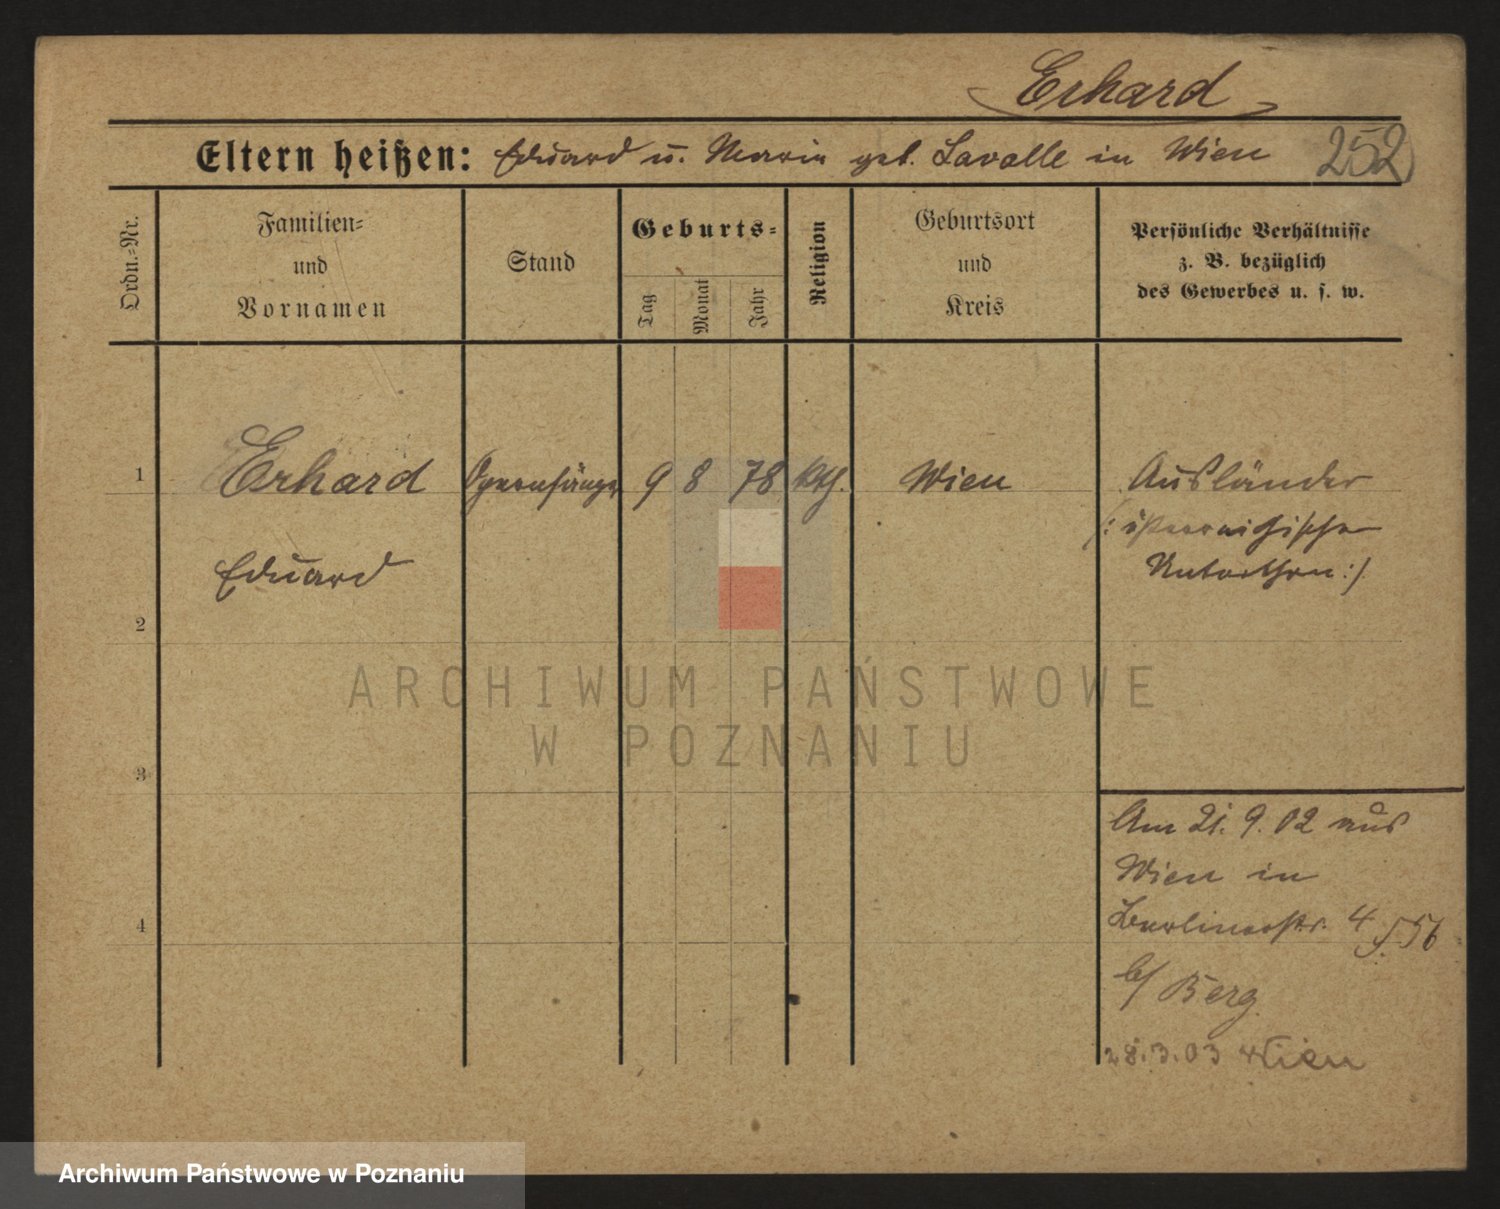 Erhard
Eltern heißen: Eduard u. Maria geb. Lavalle in Wien 252
Ordn.=Nr.
Familien=
und
Vornamen
Stand
Geburts=
Tag
Monat
Jahr
Religion
Geburtsort
und
Kreis
Persönliche Verhältnisse
z. B. bezüglich
des Gewerbes u. s. w.
1 Erhard Opernsänger 9 8 78 kth. Wien Ausländer
/: österreichischer
Eduard Unterthan :/
2
ARCHIWUM PAŃSTWOWE
W POZNANIU
3
Am 21. 9. 02 aus
Wien in
Berlinerstr. 4
4
b/ Berg
28.3.03 Wien
Archiwum Państwowe w Poznaniu